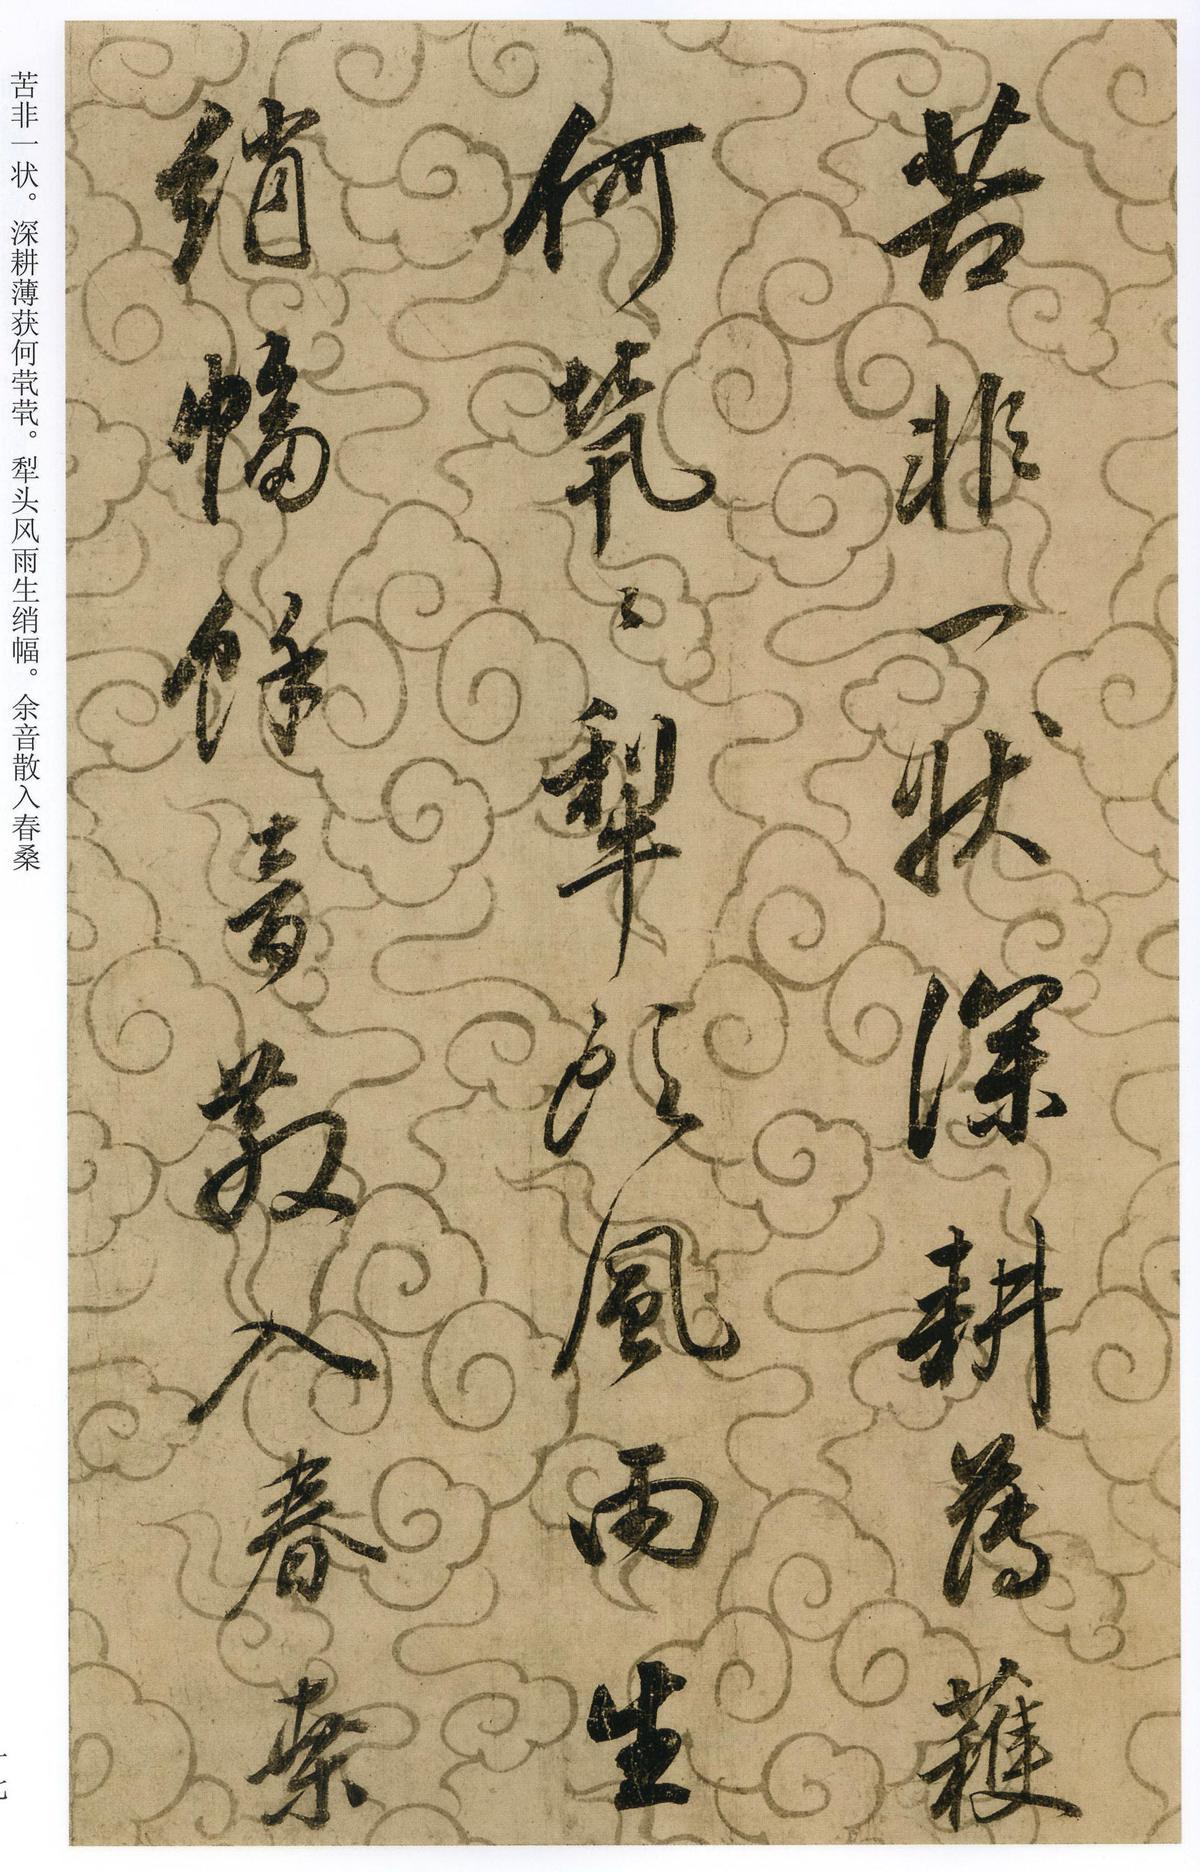 苦非一状深耕薄穫
何茕〻犁頭風雨生
綃幅餘音散入春桑
苦非一状。深耕薄获何茕茕。犁头风雨生绡幅。余音散入春桑